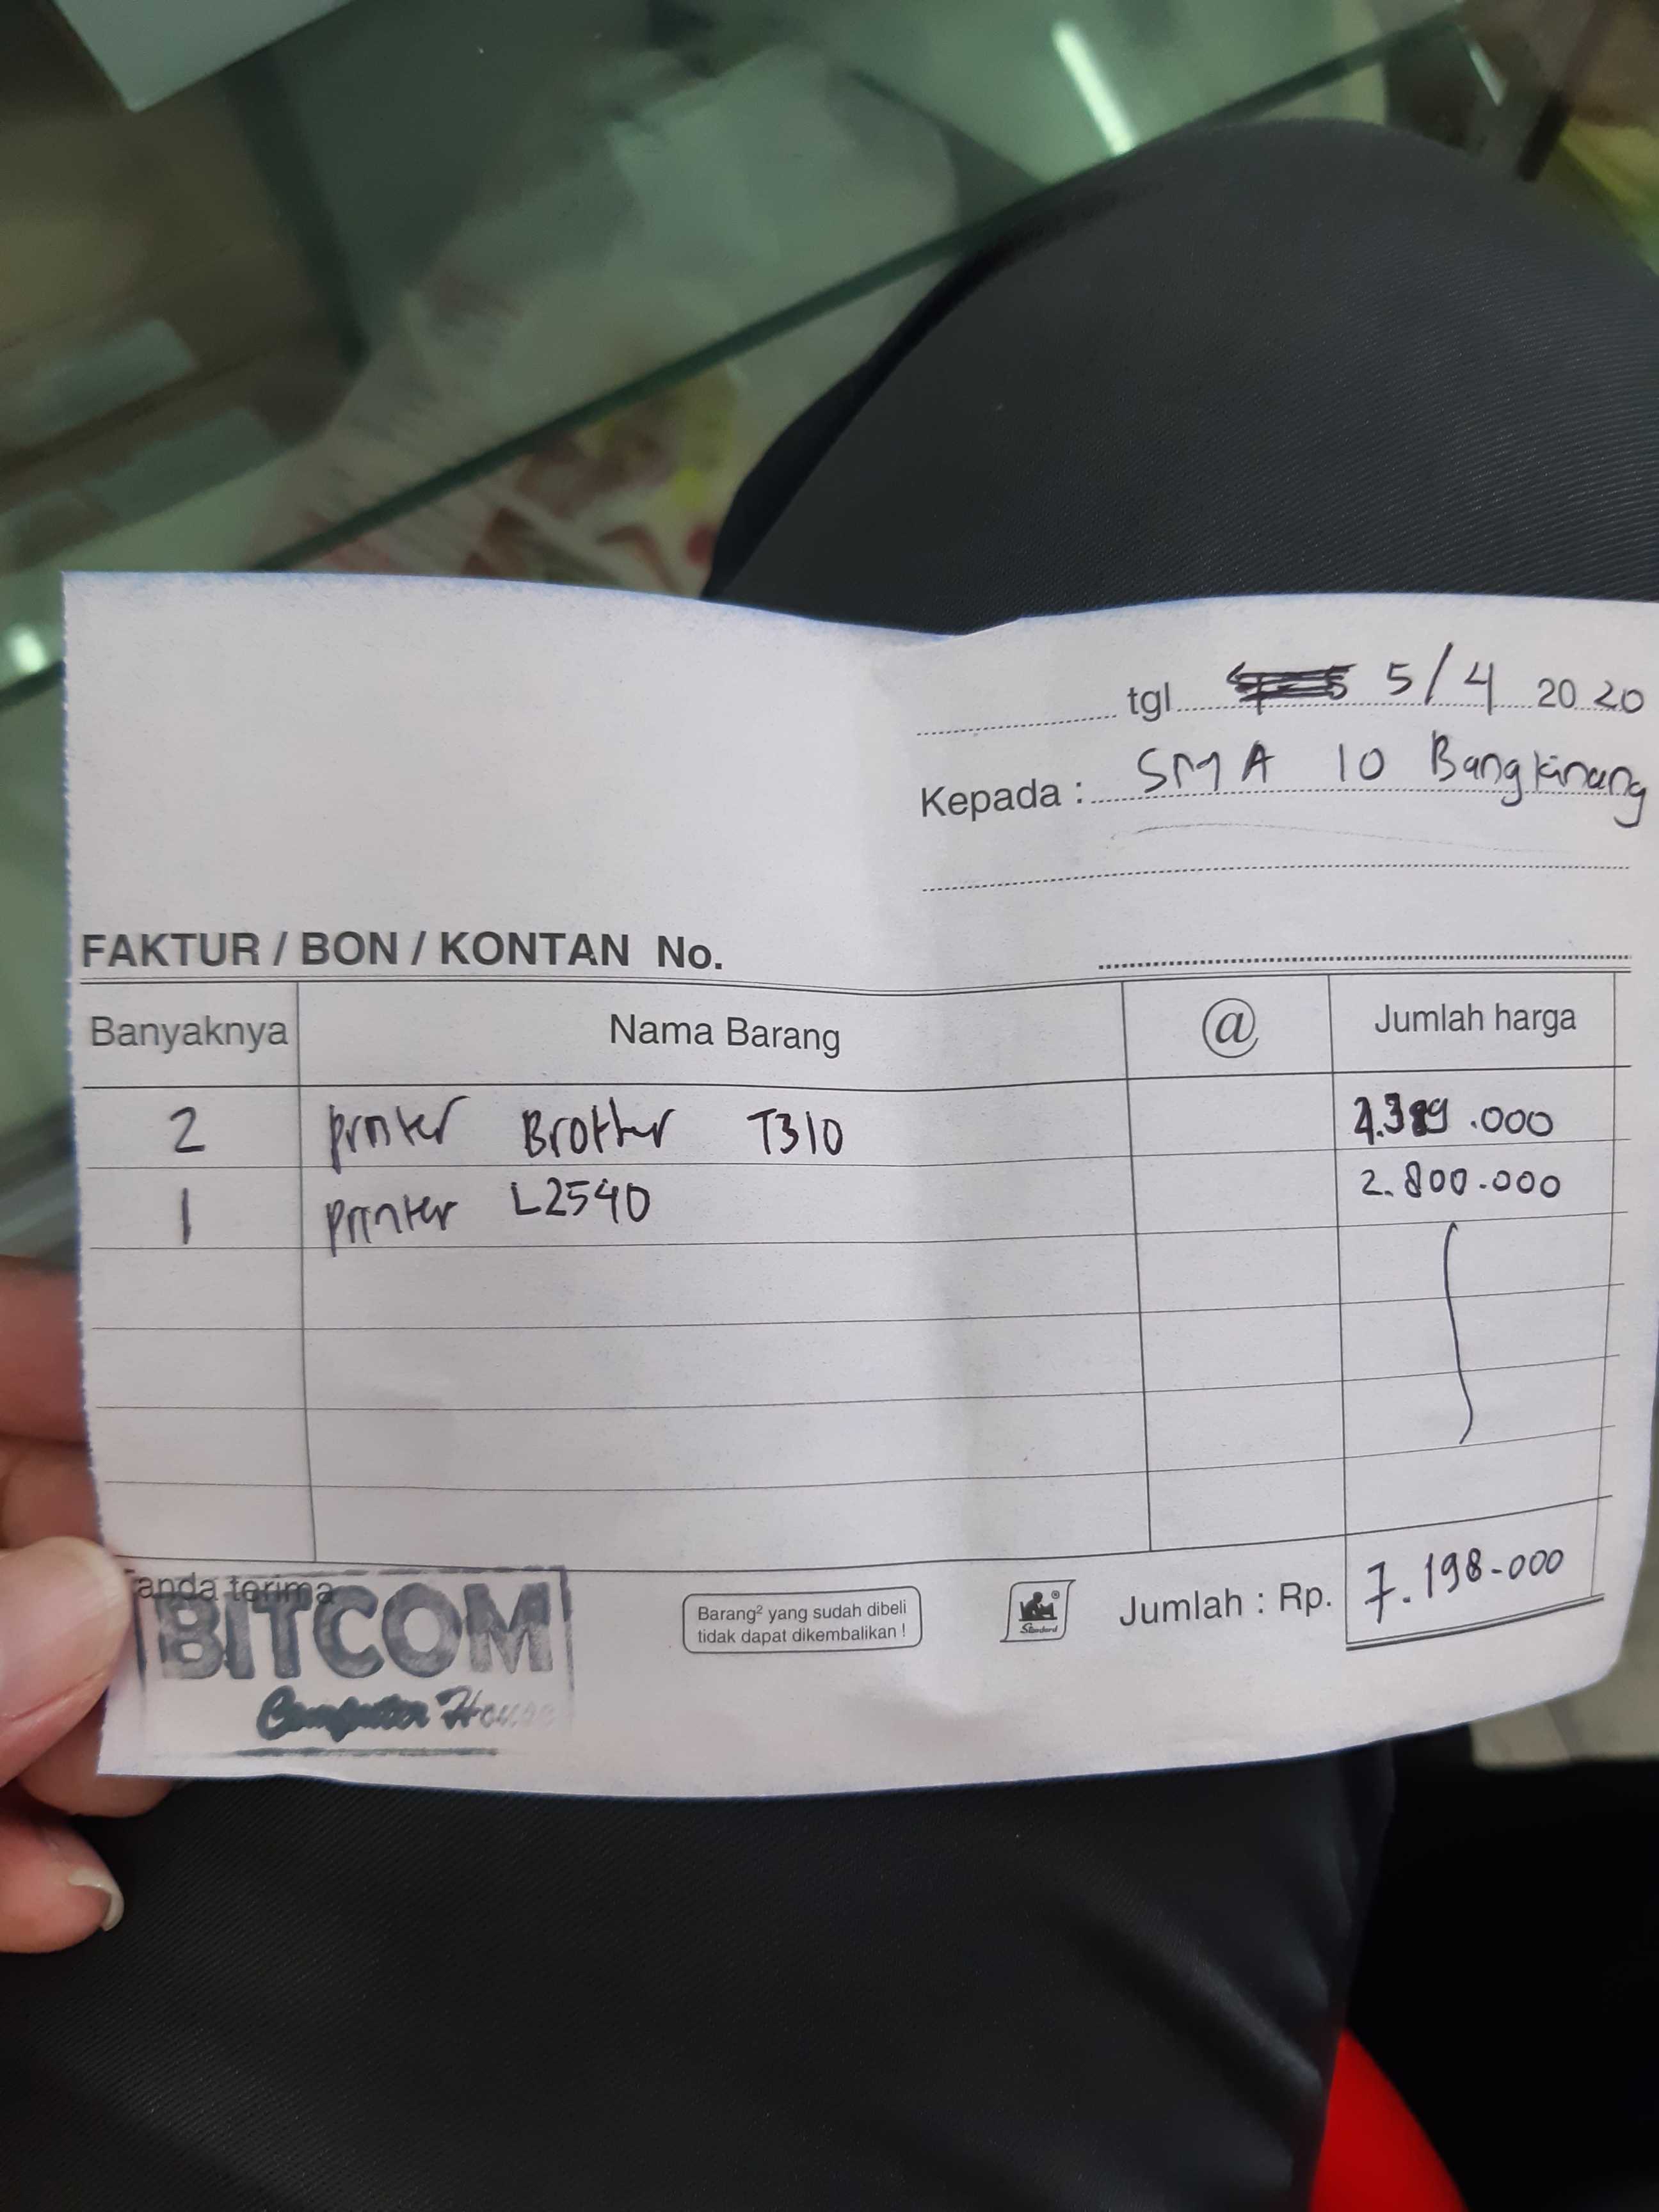 tgl 5/4 2020
Kepada : SMA 10 Bangkinang
FAKTUR / BON / KONTAN No.
Banyaknya Nama Barang @ Jumlah harga
2 printer Brother T310 .000
1 printer L2540 2.800.000
Tanda terima
BITCOM
Computer House
Barang² yang sudah dibeli
tidak dapat dikembalikan !
Standard
Jumlah : Rp. 7.198.000